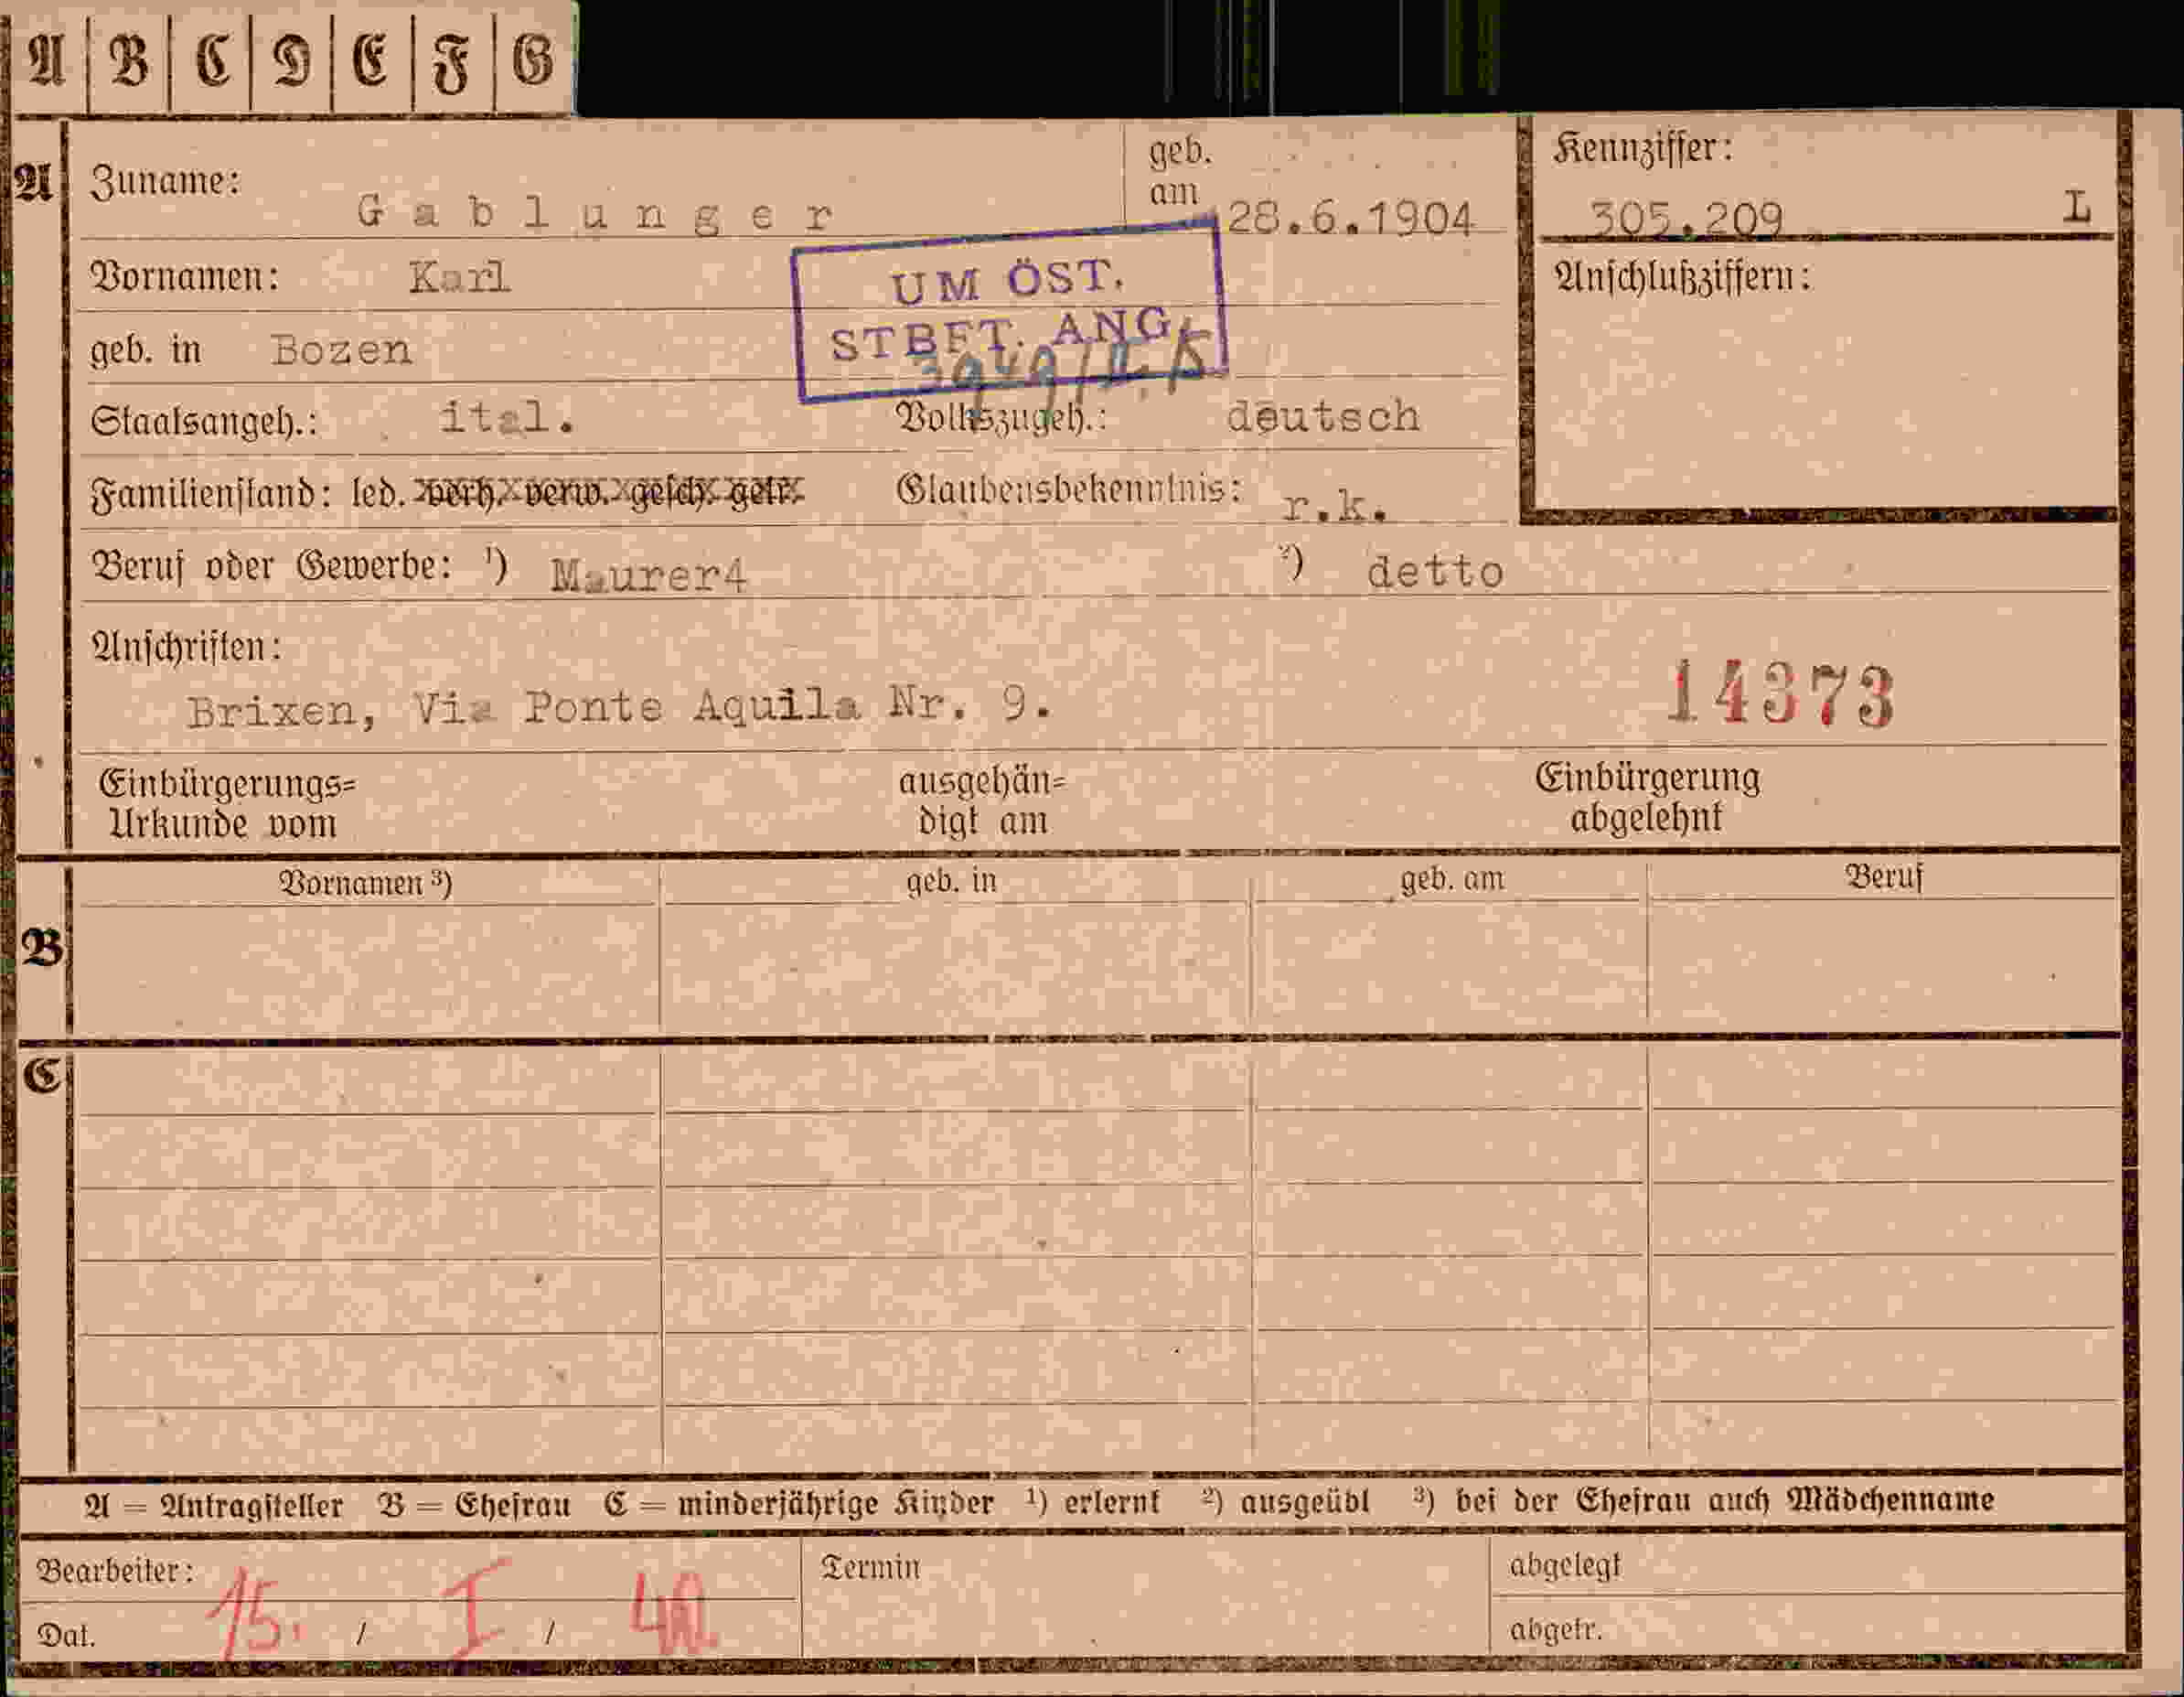 A B C D E F G
A Zuname: Gablunger geb. am 28.6.1904 Kennziffer: 305.209 L
Vornamen: Karl Anschlußziffern:
UM ÖST.
STBFT. ANG.
geb. in Bozen
Staatsangeh.: ital. Volkszugeh.: deutsch
Familienstand: led. verh. verw. gesch. getr. Glaubensbekenntnis: r.k.
Beruf oder Gewerbe: 1) Maurer4 2) detto
Anschriften:
Brixen, Via Ponte Aquila Nr. 9. 14373
Einbürgerungs= ausgehän= Einbürgerung
Urkunde vom digt am abgelehnt
B Vornamen 3) geb. in geb. am Beruf
C
A = Antragsteller B = Ehefrau C = minderjährige Kinder 1) erlernt 2) ausgeübt 3) bei der Ehefrau auch Mädchenname
Bearbeiter: Termin abgelegt
Dat. 15. / I / 40. abgetr.